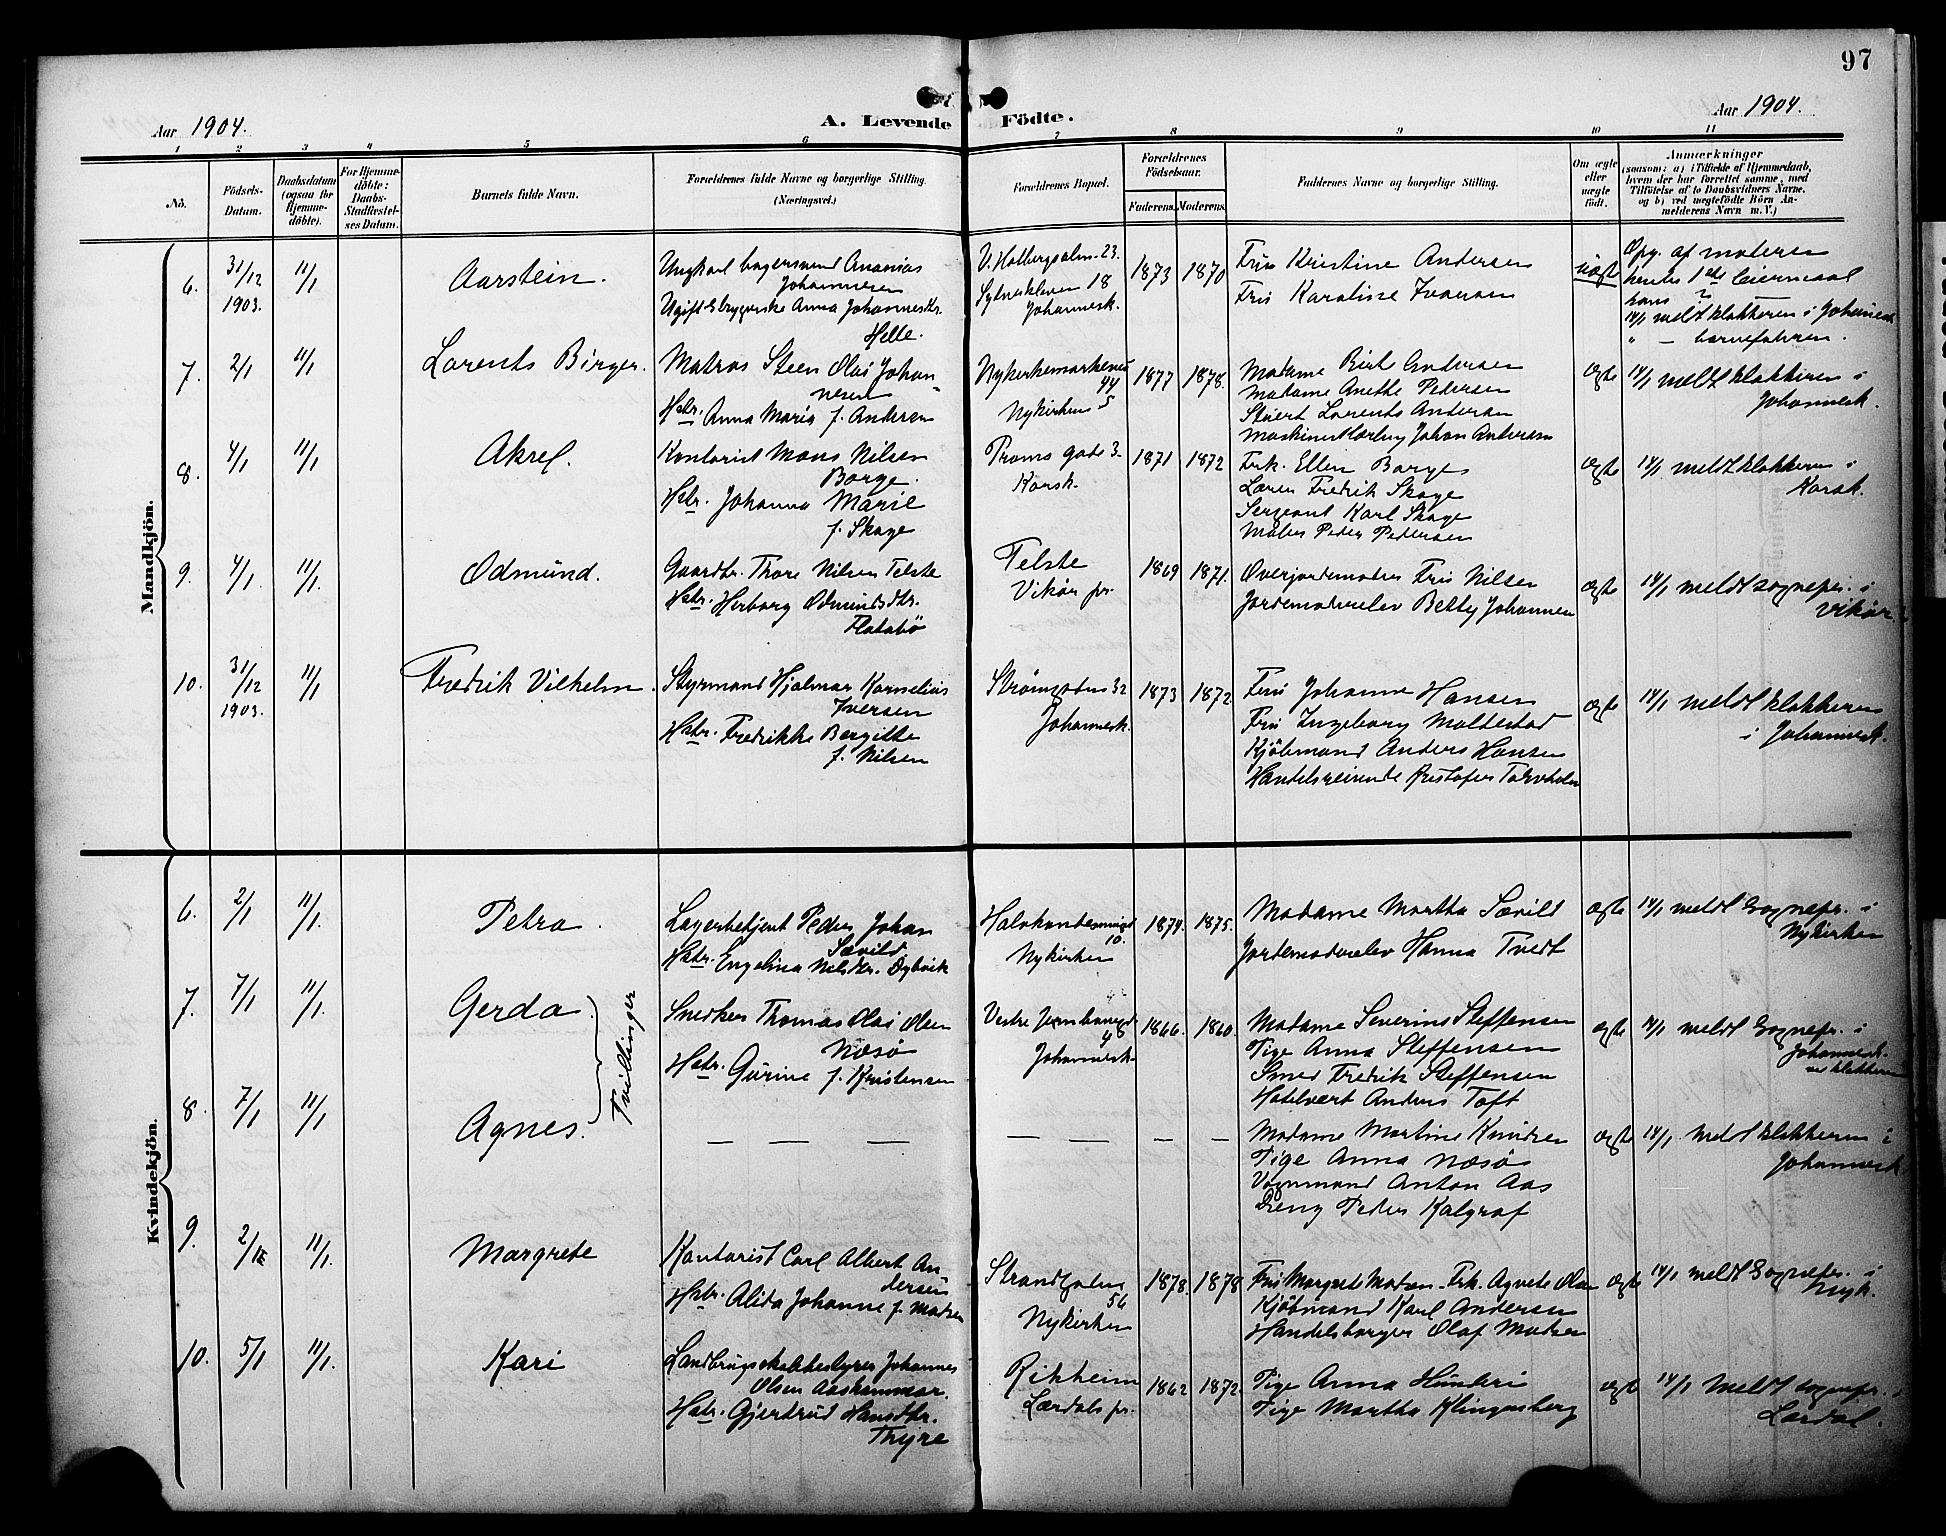 97
Aar 1904.
A. Levende Födte.
Aar 1904.
1 2 3 4 5 6 7 8 9 10 11
No.
Födsels-
Datum.
Daabsdatum
(ogsaa for
Hjemme-
döbte).
For Hjemme-
döbte:
Daabs-
Stadfæstel-
ses Datum.
Barnets fulde Navn.
Forældrenes fulde Navne og borgerlige Stilling.
(Næringsvei.)
Forældrenes Bopæl.
Forældrenes
Födselsaar.
Faderens. Moderens.
Faddernes Navne og borgerlige Stilling.
Om ægte
eller
uægte
födt.
Anmærkninger
(saasom: a) i Tilfælde af Hjemmedaab,
hvem der har forrettet samme, med
Tilföielse af to Daabsvidners Navne,
og b) ved uægtefödte Börn An-
melderens Navn m. V.)
Mandkjön.
6. 31/12 1903. 11/1 Aarstein.
Ungkarl bagersvend Ananias
Johannesen
Ugift Anna Johannesdtr.
Helle.
V. Holbergsalm. 23.
18
Johannesk.
1873 1870
Fru Kristine Andersen
Fru Karoline Iversen
uægte
Opg. af moderen
hendes 1ste leiermaal
hans 2
14/1 meldt klokkeren i Johannesk
" — barnefaderen.
7. 2/1 11/1 Lorents Birger.
Matros Steen Olai Johan-
nesen
Hstr. Anna Maria f. Andersen
Nykirkemarkenes
44
Nykirken
1877 1878.
Madame Berit Andersen
Madame Anethe Petersen
Stuert Lorents Andersen
Johan Andersen
ægte
14/1 meldt klokkeren i
Johannesk.
8. 4/1 11/1 Aksel.
Kontorist Mons Nilsen
Borge.
Hstr. Johanna Marie
f. Skage
Proms gade 3
Korsk.
1871 1872
Frk. Ellen Borge
Lærer Fredrik Skage
Sergeant Karl Skage
Maler Peder Pedersen
ægte
14/1 meldt klokkeren i
Korsk.
9. 4/1 11/1. Odmund.
Gaardbr. Thore Nilsen Telste
Hstr. Herborg Odmundsdtr.
Flatabö
Telste
Vikör pr.
1869 1871.
Overjordemoder Fru Nilsen
Jordemoderelev Betty Johannesen
ægte
14/1 meldt sognepr. i
Vikör.
10. 31/12 1903. 11/1 Fredrik Vilhelm.
Styrmand Hjalmar Kornelius
Iversen
Hstr. Fredrikke Bergitte
f. Nilsen
Strömgaden 32
Johannesk.
1873 1872
Fru Johanne Hansen
Fru Ingeborg Moldestad
Kjöbmand Anders Hansen
Handelsreisende Kristofer
ægte
14/1 meldt klokkeren
i Johannesk.
Kvindekjön.
6. 2/1 11/1. Petra.
Lagerbetjent Peder Johan
Sævild
Hstr. Engelina Nilsdtr. Dybvik
10.
Nykirken
1874. 1875.
Madame Martha Sævild
Jordemoderelev Hanna Tvedt
ægte
14/1 meldt Sognepr. i
Nykirken
7. 7/1 11/1. Gerda.
Tvillinger
Snedker Thomas Olai Olsen
Næsö
Hstr. Gurine f. Kristensen
Vestre
Johannesk.
1866. 1860.
Madame Severine Steffensen
Pige Anna Steffensen
Smed Fredrik Steffensen
Hotelvært Anders Toft
ægte
14/1 meldt Sognepr. i
Johannesk.
klokkeren
8. 7/1 11/1 Agnes.
— — — — — — —
Madame Martine Knudsen
Pige Anna Næsö
Vognmand Anton Aas
Dreng Peder Kalgraf
ægte
14/1 meldt klokkeren i
Johannesk.
9. 2/1 11/1. Margrete
Kontorist Carl Albert An-
dersen
Hstr. Alida Johanne f. Madsen
Strandgaden
56
Nykirken
1878. 1878
Fru Margrete Madsen. Frk. Agnete Olsen
Kjöbmand Karl Andersen
Handelsborger Olaf Madsen
ægte
14/1 meldt Sognepr. i
Nyk.
10. 5/1 11/1. Kari
Landbrugsskolebestyrer Johannes
Olsen Aaskammar.
Hstr. Gjertrud Hansdtr.
Thyre
Rikheim
Lærdals pr.
1862 1872.
Pige Anna
Pige Martha Klingenberg
ægte
14/1 meldt sognepr. i
Lærdal.